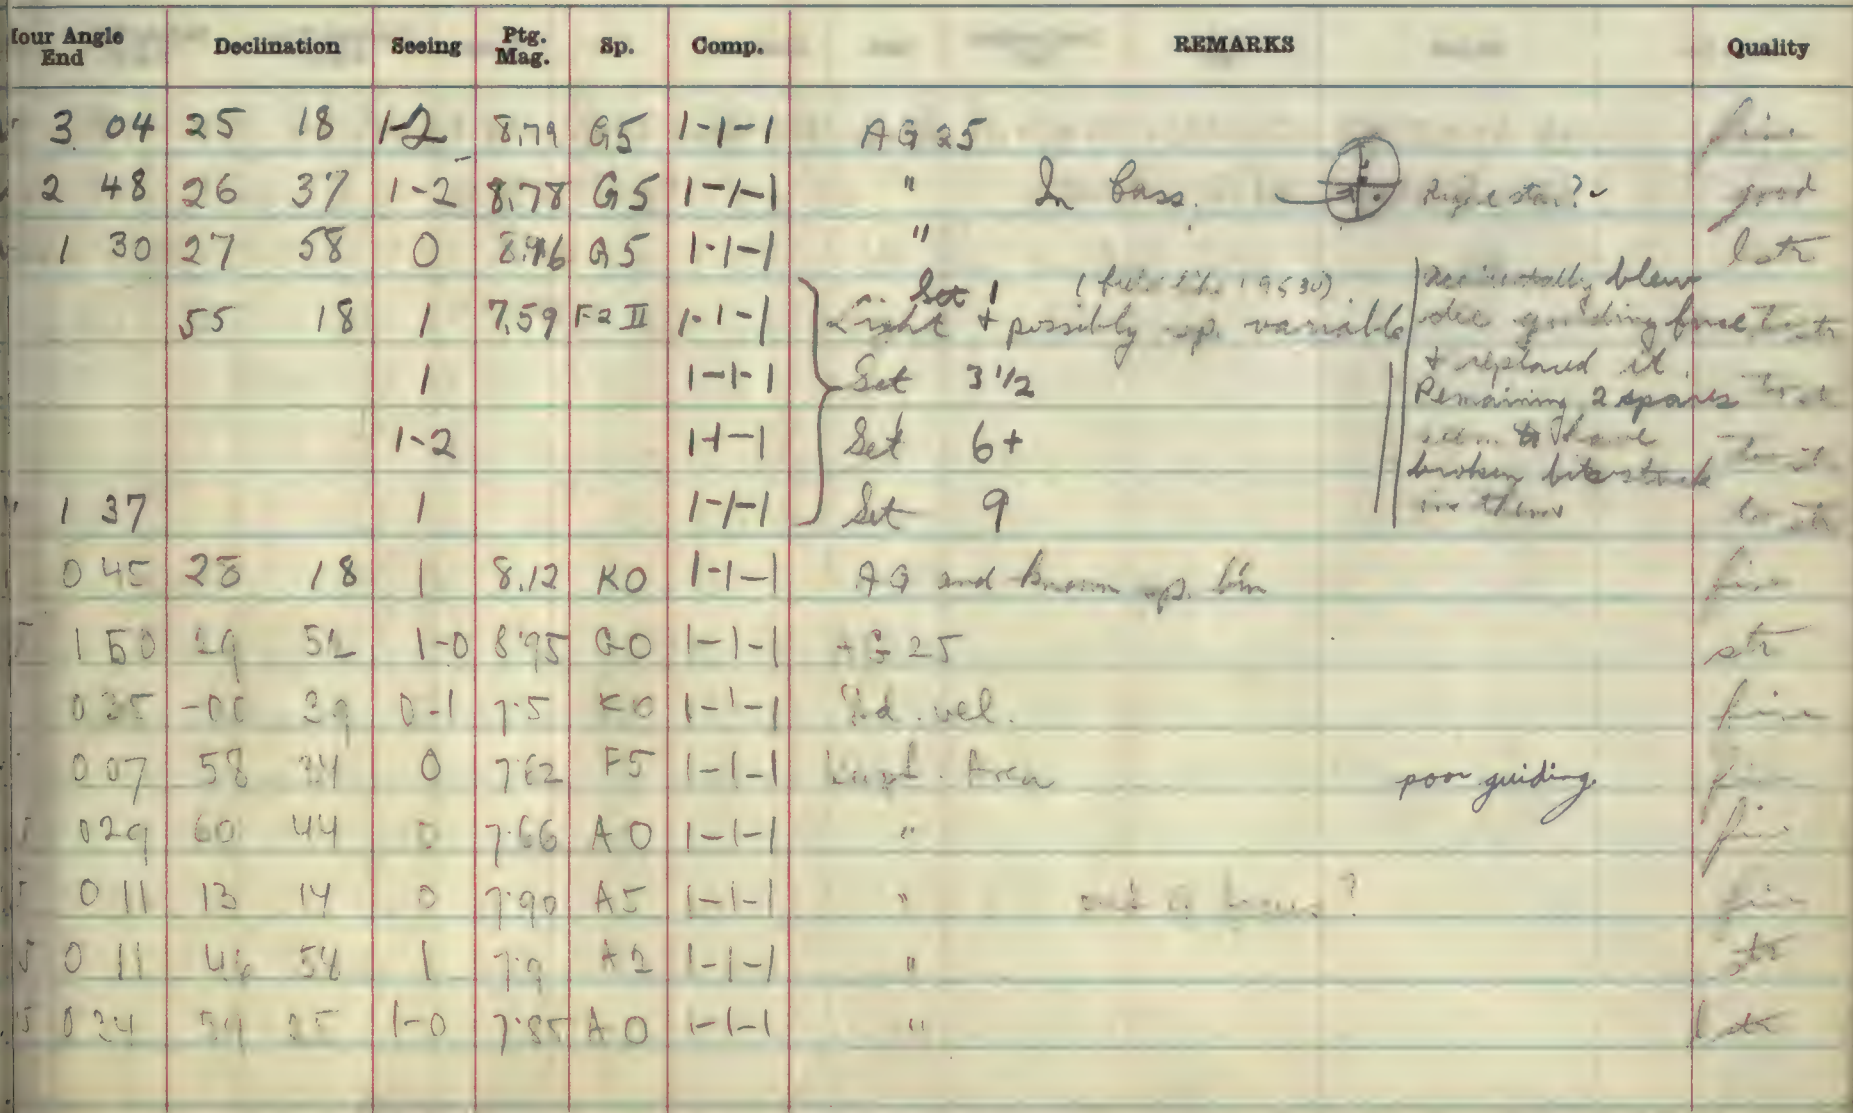 Hour Angle End Declination Seeing Ptg. Mag. Sp. Comp. REMARKS Quality
3 04 25 18 1-2 8.79 G5 1-1-1 AG 25 fine
2 48 26 37 1-2 8.78 G5 1-1-1 " In Cass. Right star? good
1 30 27 58 0 G5 1-1-1 " l str
55 18 1 7.59 F2 II 1-1-1 Set 1 Light + possibly sp. variable
1 1-1-1 Set 3 1/2
1-2 1-1-1 Set 6+
1 37 1 1-1-1 Set 9
Accidentally blew
dec guiding fuse
+ replaced it.
Remaining 2 spares
seem to have
broken bits stuck
in them
0 45 28 18 1 8.12 K0 1-1-1 AG and known sp. bin fine
1 50 29 52 1-0 8.95 G0 1-1-1 AG 25 str
0 35 39 0-1 7.5 K0 1-1-1 Rd. vel. fine
0 07 58 0 7.62 F5 1-1-1 Area poor guiding fine
0 29 60 44 0 7.66 A0 1-1-1 " fine
0 11 13 14 0 7.90 A5 1-1-1 " out of focus? fine
0 11 46 54 1 7.9 A2 1-1-1 " str
0 24 1-0 7.85 A0 1-1-1 " l str